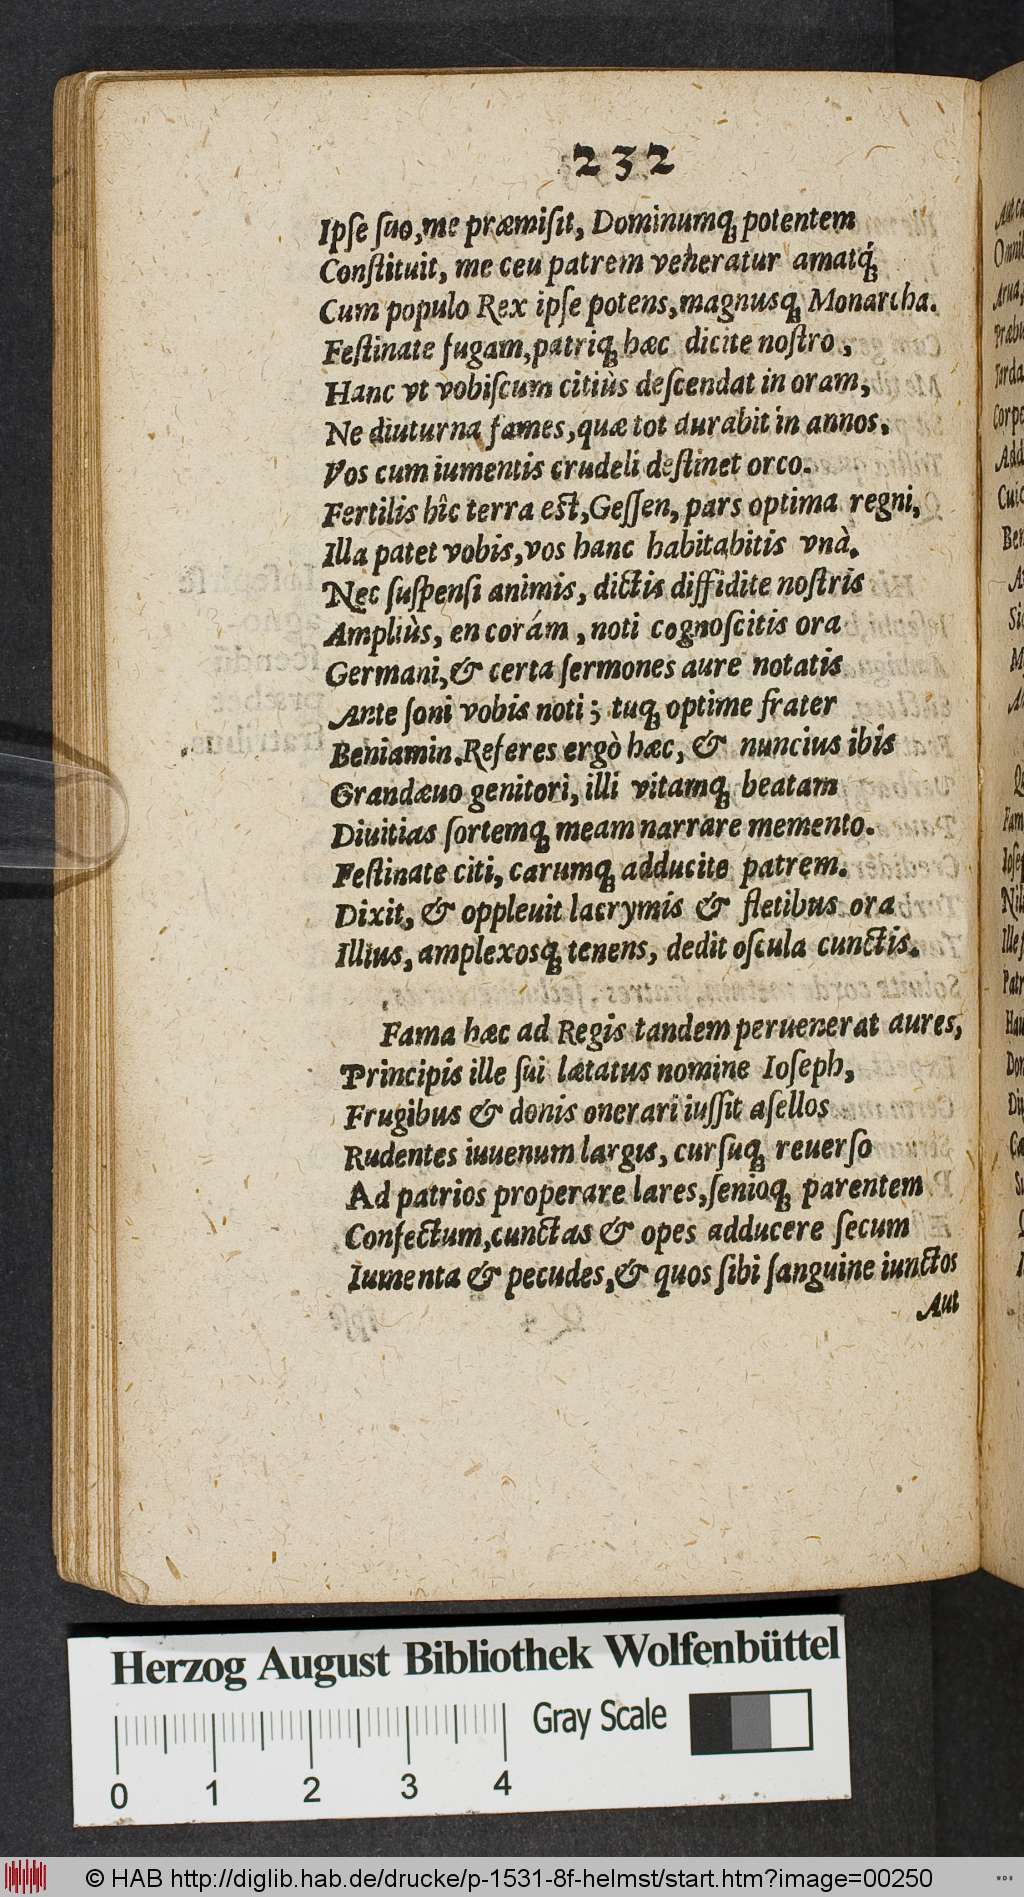 232
Ipſe ſuo, me præmiſit, Dominumq́ꝫ potentem
Conſtituit, me ceu patrem veneratur amatq́ꝫ
Cum populo Rex ipſe potens, magnusqꝫ Monarcha.
Feſtinate fugam, patriqꝫ hæc dicite noſtro,
Hanc vt vobiſcum citiùs deſcendat in oram,
Ne diuturna fames, quæ tot durabit in annos.
Vos cum iumentis crudeli deſtinet orco.
Fertilis hîc terra eſt, Geſſen, pars optima regni,
Illa patet vobis, vos hanc habitabitis vnà.
Nec ſuſpenſi animis, dictis diffidite noſtris
Ampliùs, en corám, noti cognoſcitis ora
Germani, & certa ſermones aure notatis
Ante ſoni vobis noti; tuqꝫ optime frater
Beniamin. Referes ergò hæc, & nuncius ibis
Grandæuo genitori, illi vitamqꝫ beatam
Diuitias ſortemqꝫ meam narrare memento.
Feſtinate citi, carumqꝫ adducite patrem.
Dixit, & oppleuit lacrymis & fletibus ora
Illius, amplexosqꝫ tenens, dedit oſcula cunctis.
Fama hæc ad Regis tandem peruenerat aures,
Principis ille ſui lætatus nomine Ioſeph,
Frugibus & donis onerari iuſſit aſellos
Rudentes iuuenum largis, curſuqꝫ reuerſo
Ad patrios properare lares, ſenioqꝫ parentem
Confectum, cunctas & opes adducere ſecum
Iumenta & pecudes, & quos ſibi ſanguine iunctos
Aut
Herzog August Bibliothek Wolfenbüttel
Gray Scale
0 1 2 3 4
© HAB http://diglib.hab.de/drucke/p-1531-8f-helmst/start.htm?image=00250